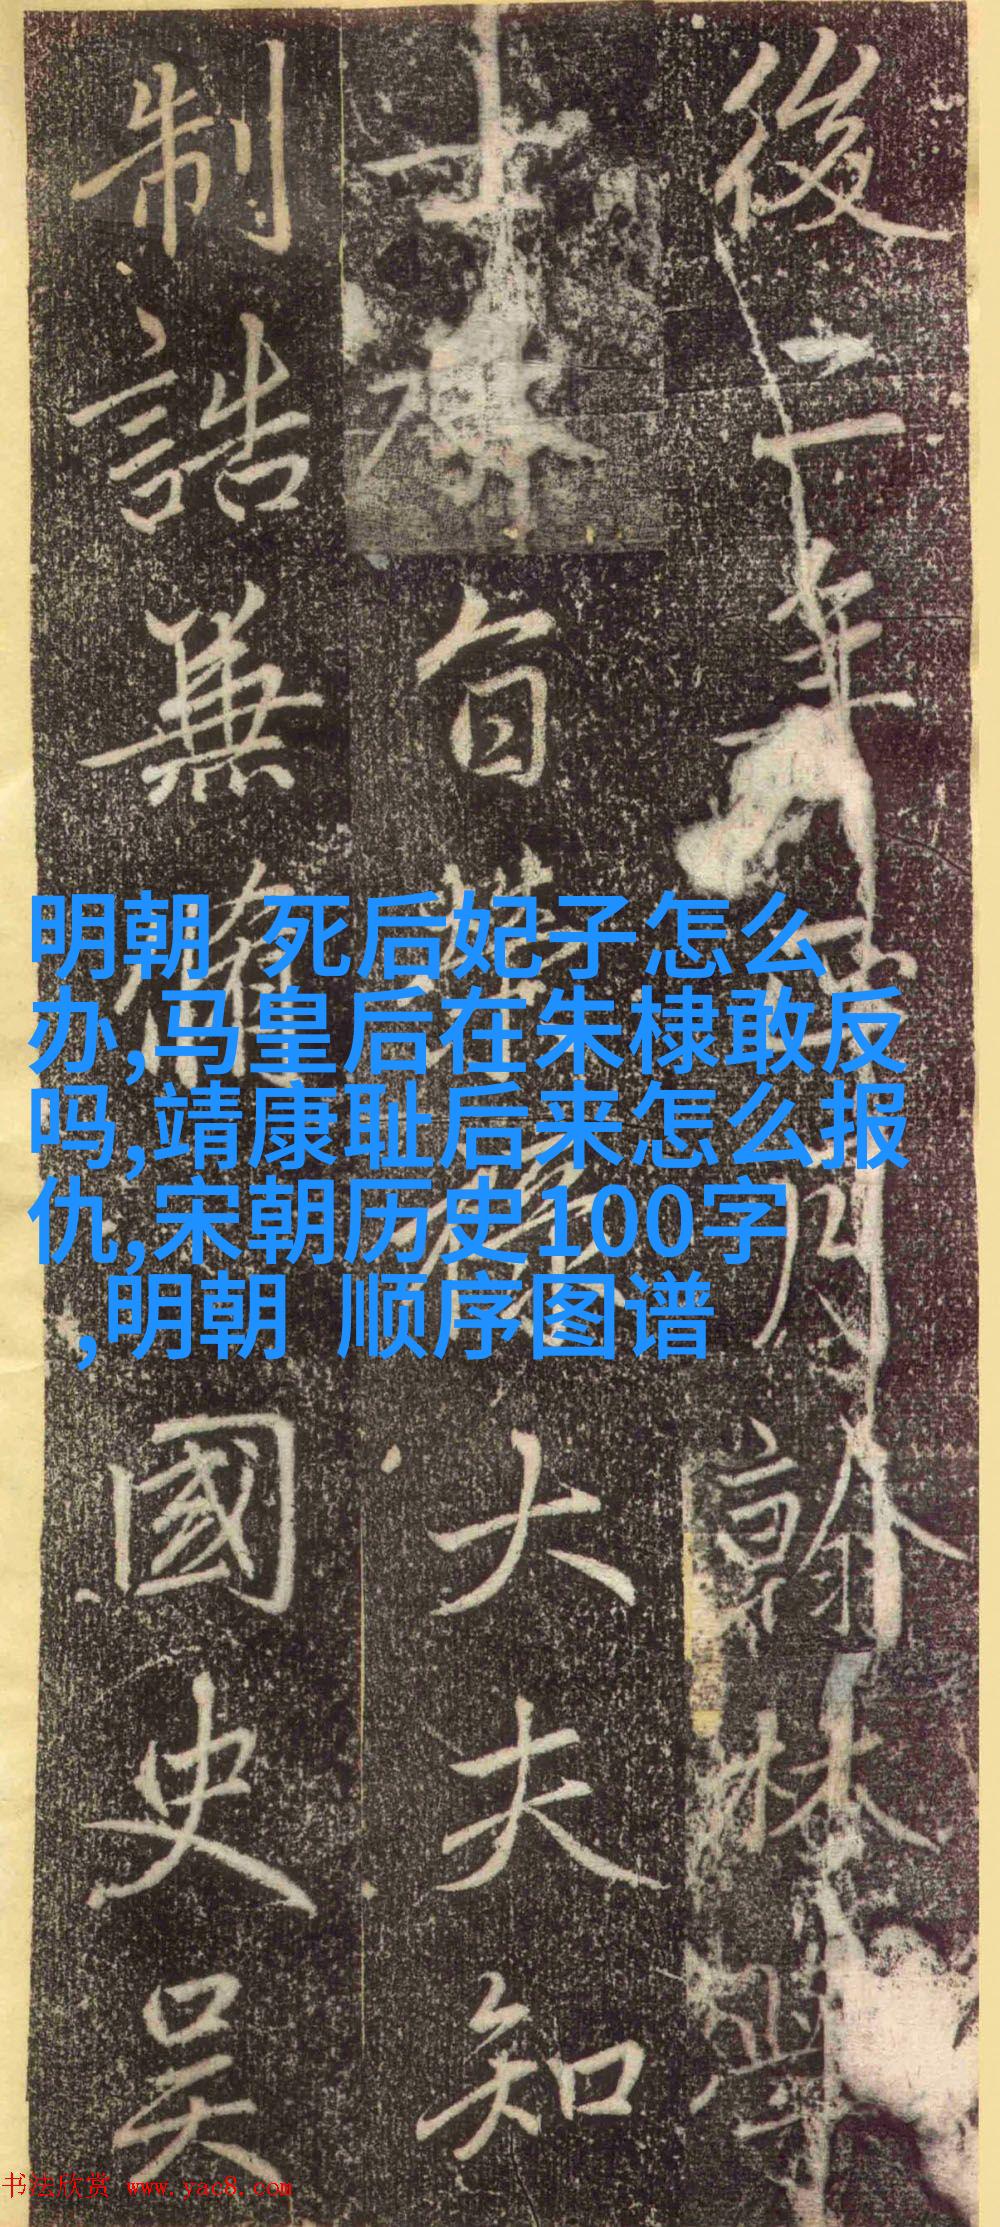 後二年正月翰林學
士
旨
大夫知
制誥兼
國史吴
明朝 死后妃子怎么
办,马皇后在朱棣敢反
吗,靖康耻后来怎么报
仇,宋朝历史100字
,明朝 顺序图谱
书法欣赏 www.yac8.com